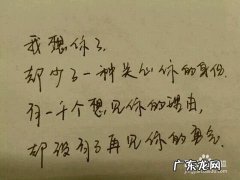 我想你了
却少了一种关心你的身份.
有一千个想见你的理由,
却没有了再见你的勇气.
广东龙网